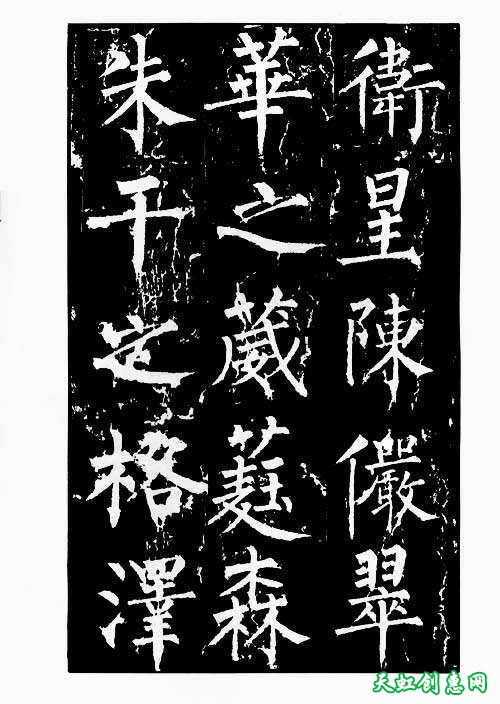 衛星陳儼翠
華之葳蕤森
朱干之格澤
天虹创惠网